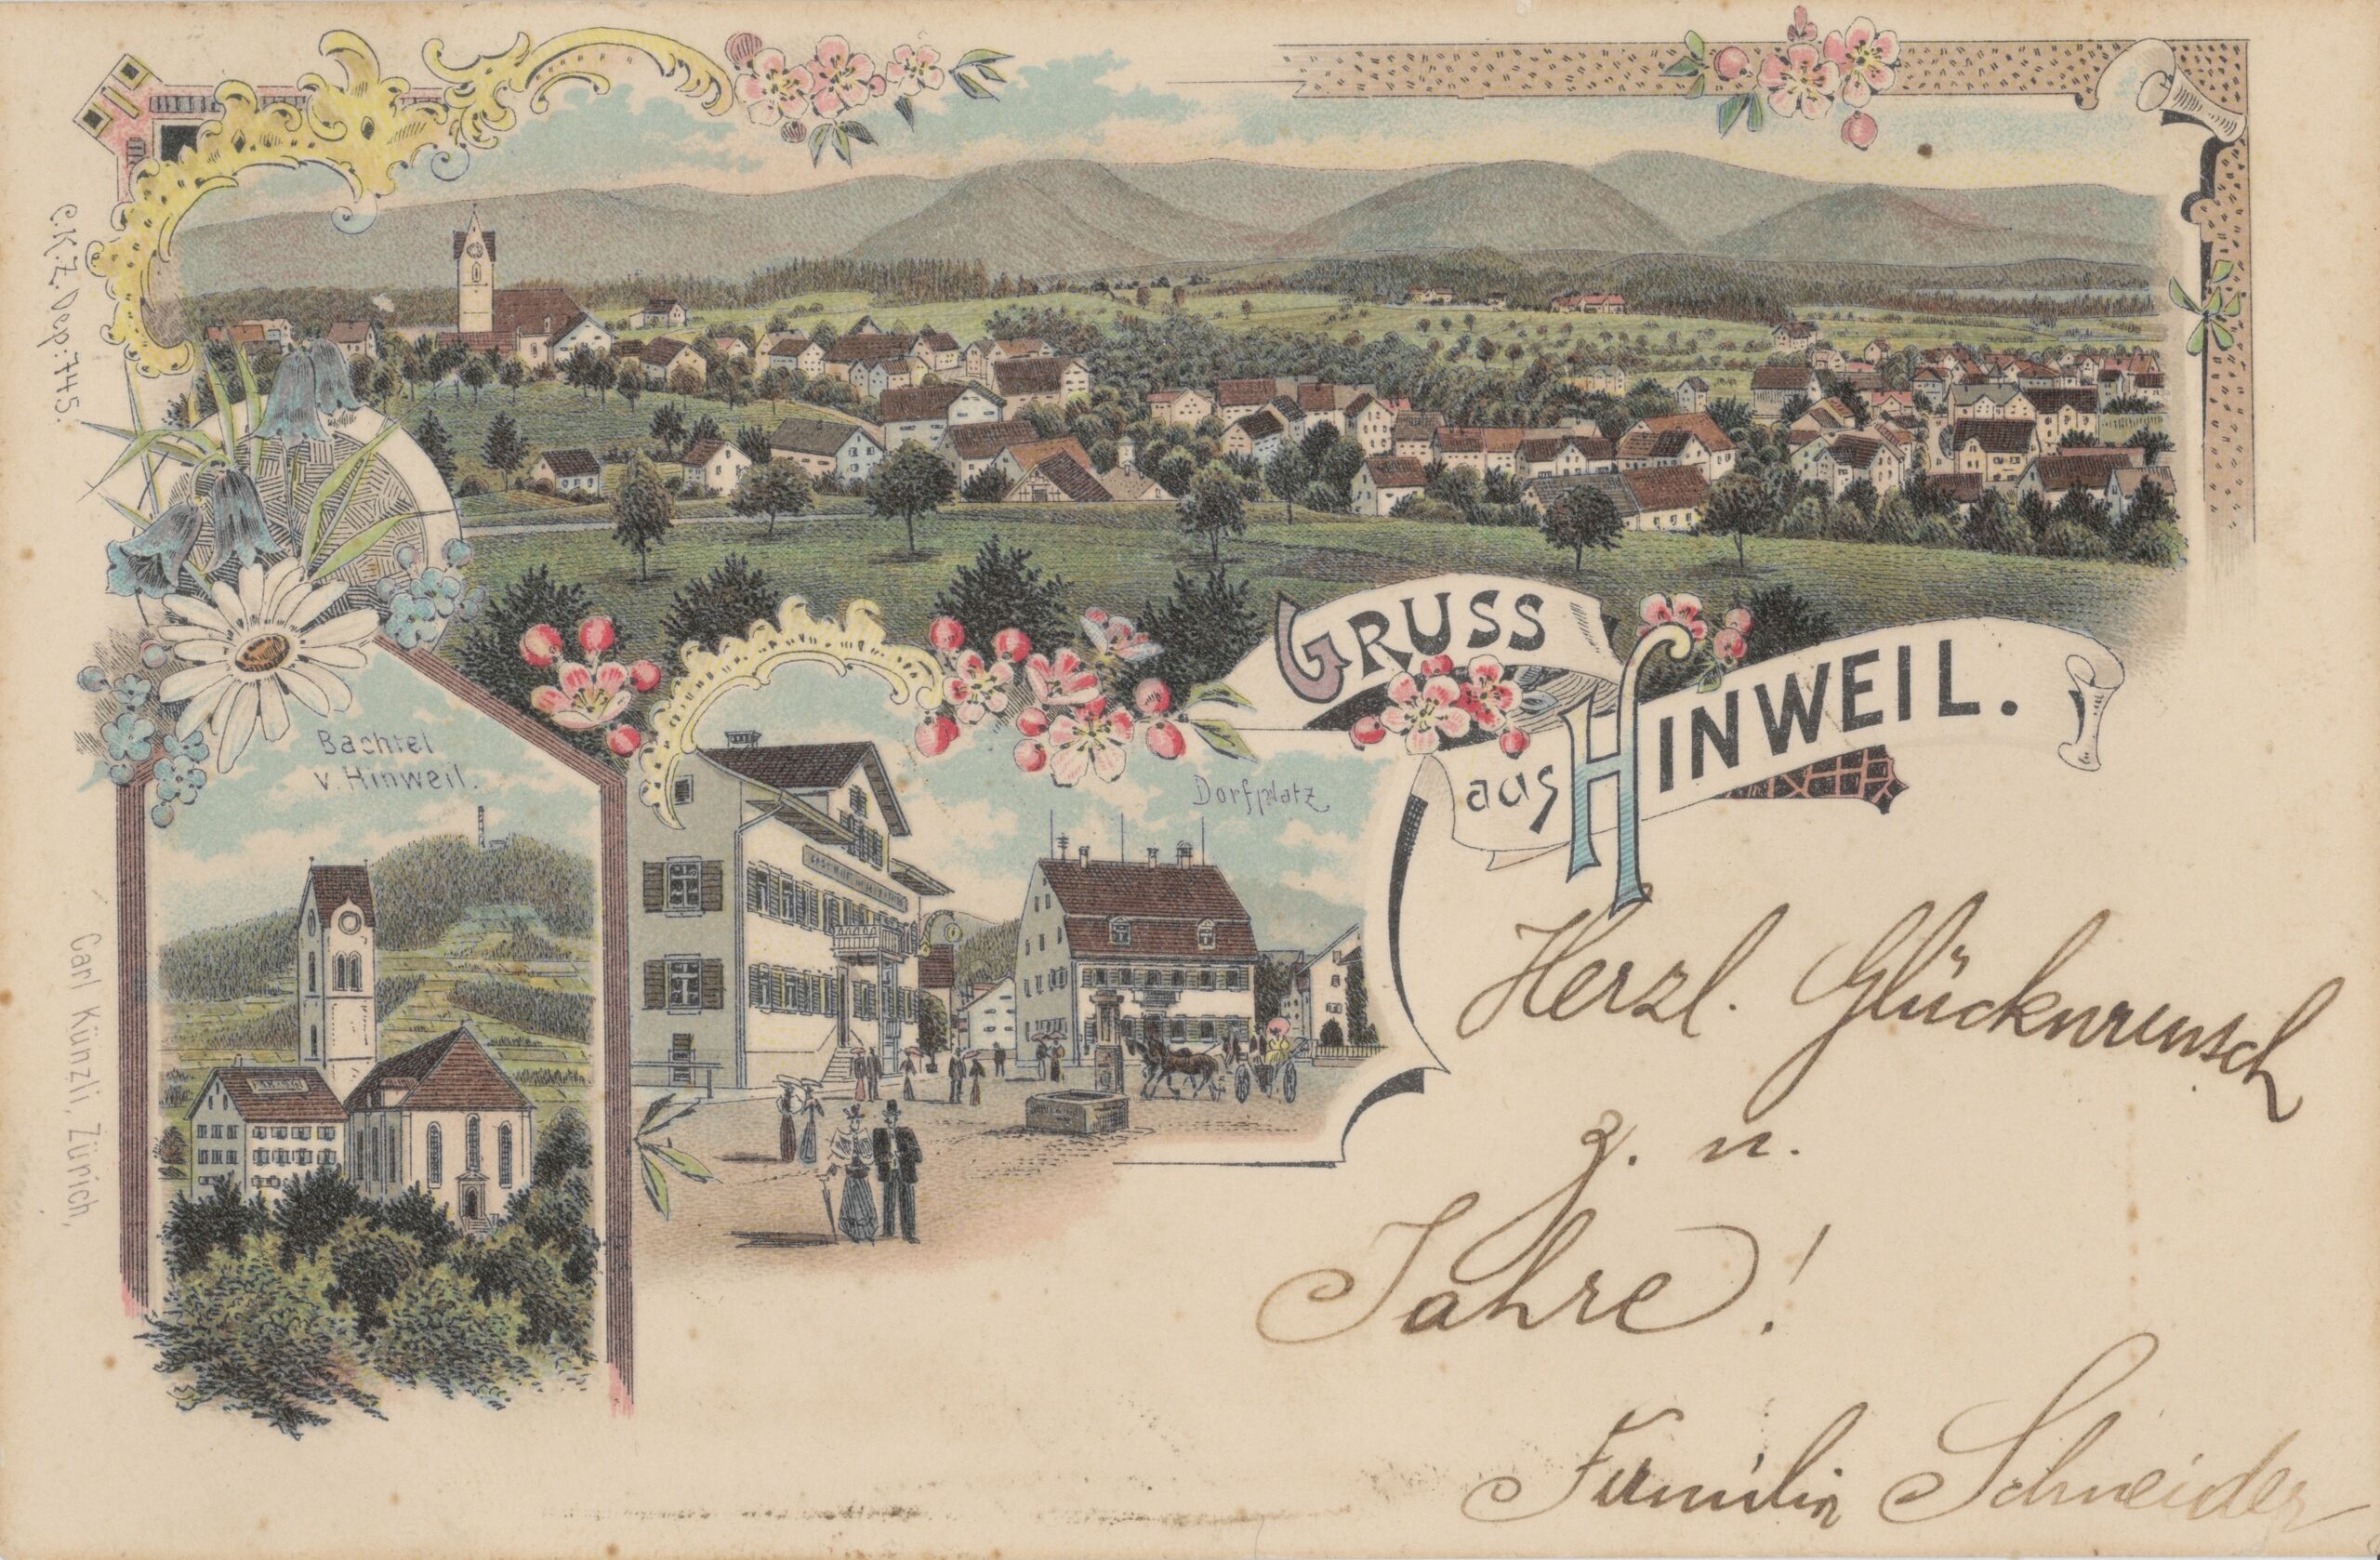 C.K.Z. Dep: 745.
GRUSS
aus HINWEIL.
Bachtel
v. Hinweil.
Dorfplatz
Carl Künzli, Zürich,
Herzl. Glückwunsch
z. n.
Jahre!
Familie Schneider